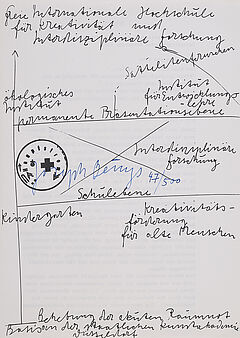 Freie Internationale Hochschule
für Kreativität und
Interdisziplinäre Forschung
Institut
für Entwicklungs-
lehre
ökologisches
Institut
permanente Präsentationsebene
Interdisziplinäre
Forschung
Joseph Beuys 47/500
Schulebene
Kindergarten
Kreativitäts-
förderung
für alte Menschen
Behebung der akuten Raumnot
Basis an der staatlichen Kunstakademie
Düsseldorf